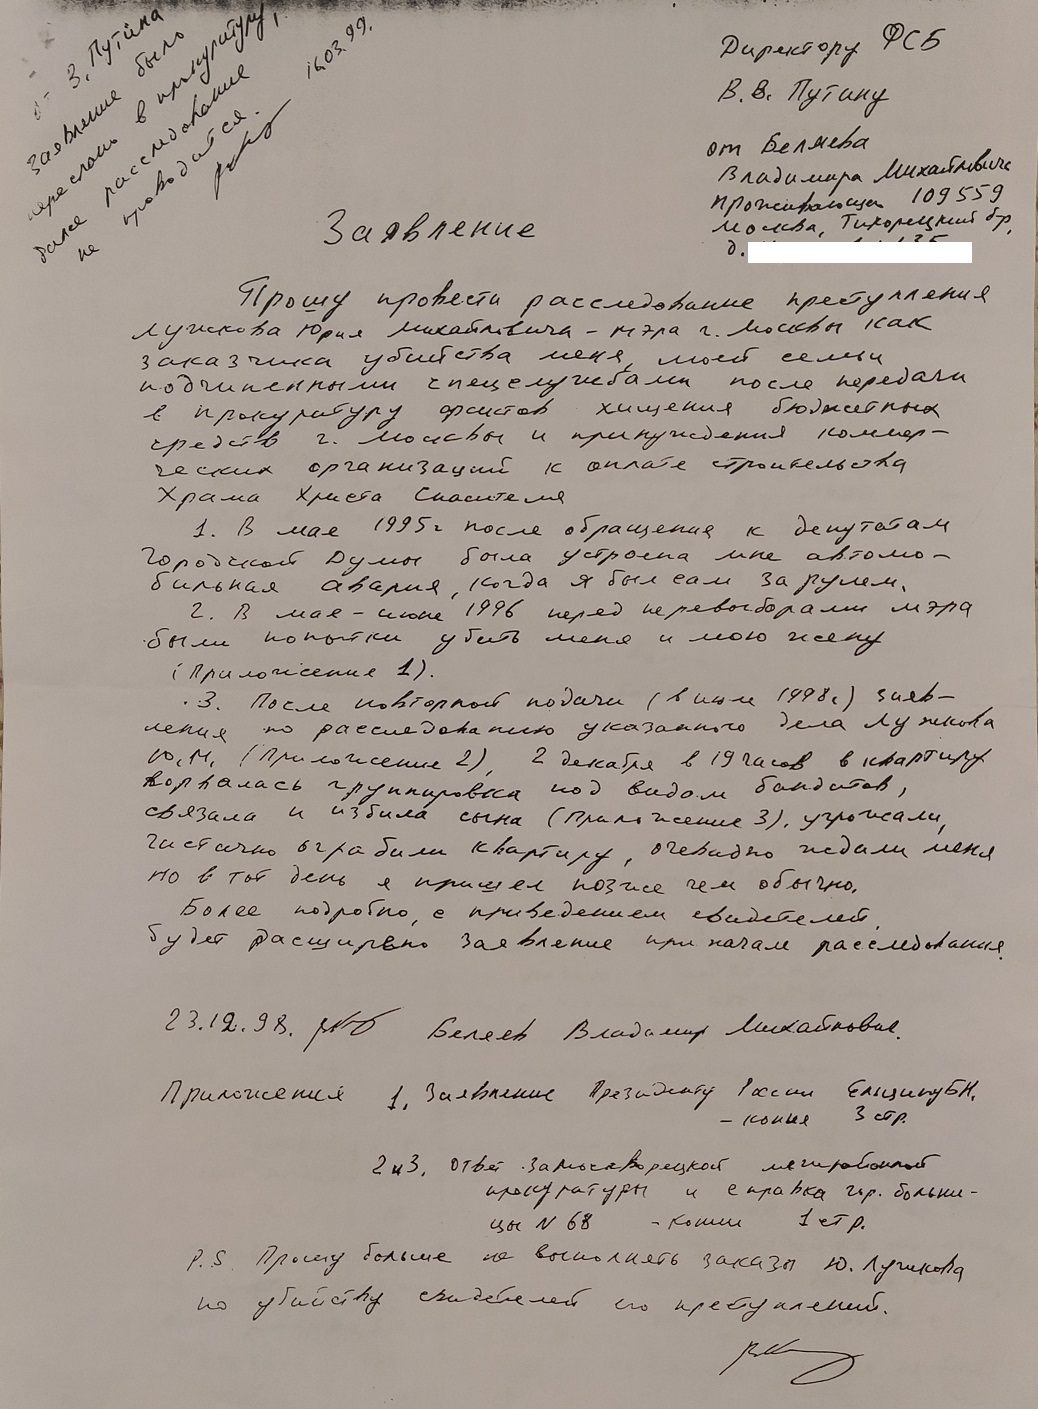 З. Путина
Заявление было
переслано в прокуратуру,
далее расследование
не проводится.
16.03.99.
Директору ФСБ
В.В. Путину
от Беляева
Владимира Михайловича
проживающ 109559
Москва, Тихорецкий бр,
д.
Заявление
Прошу провести расследование преступления
Лужкова Юрия Михайловича – мэра г. Москвы как
заказчика убийства меня, моей семьи
подчиненными спецслужбами после передачи
в прокуратуру фактов хищения бюджетных
средств г. Москвы и принуждения коммер-
ческих организаций к оплате строительства
Храма Христа Спасителя
1. В мае 1995г после обращения к депутатам
Городской Думы была устроена мне автомо-
бильная авария, когда я был сам за рулем.
2. В мае – июне 1996 перед перевыборами мэра
были попытки убить меня и мою жену
(Приложение 1).
3. После повторной подачи (в июле 1998г) заяв-
ления по расследованию указанного дела Лужкова
Ю.М. (Приложение 2), 2 декабря в 19 часов в квартиру
ворвалась группировка под видом бандитов,
связала и избила сына (Приложение 3), угрожали,
частично ограбили квартиру, очевидно ждали меня
но в тот день я пришел позже чем обычно.
Более подробно, с приведением свидетелей,
будет расширено заявление при начале расследования.
23.12.98. Беляев Владимир Михайлович.
Приложения 1. Заявление Президенту России Ельцину Б.Н.
– копия 3 стр.
2 и 3. Ответ Замоскворецкой межрайонной
прокуратуры и справка гор. больни-
цы N 68 – копии 1 стр.
P.S. Прошу больше не выполнять заказы Ю. Лужкова
по убийству свидетелей его преступлений.